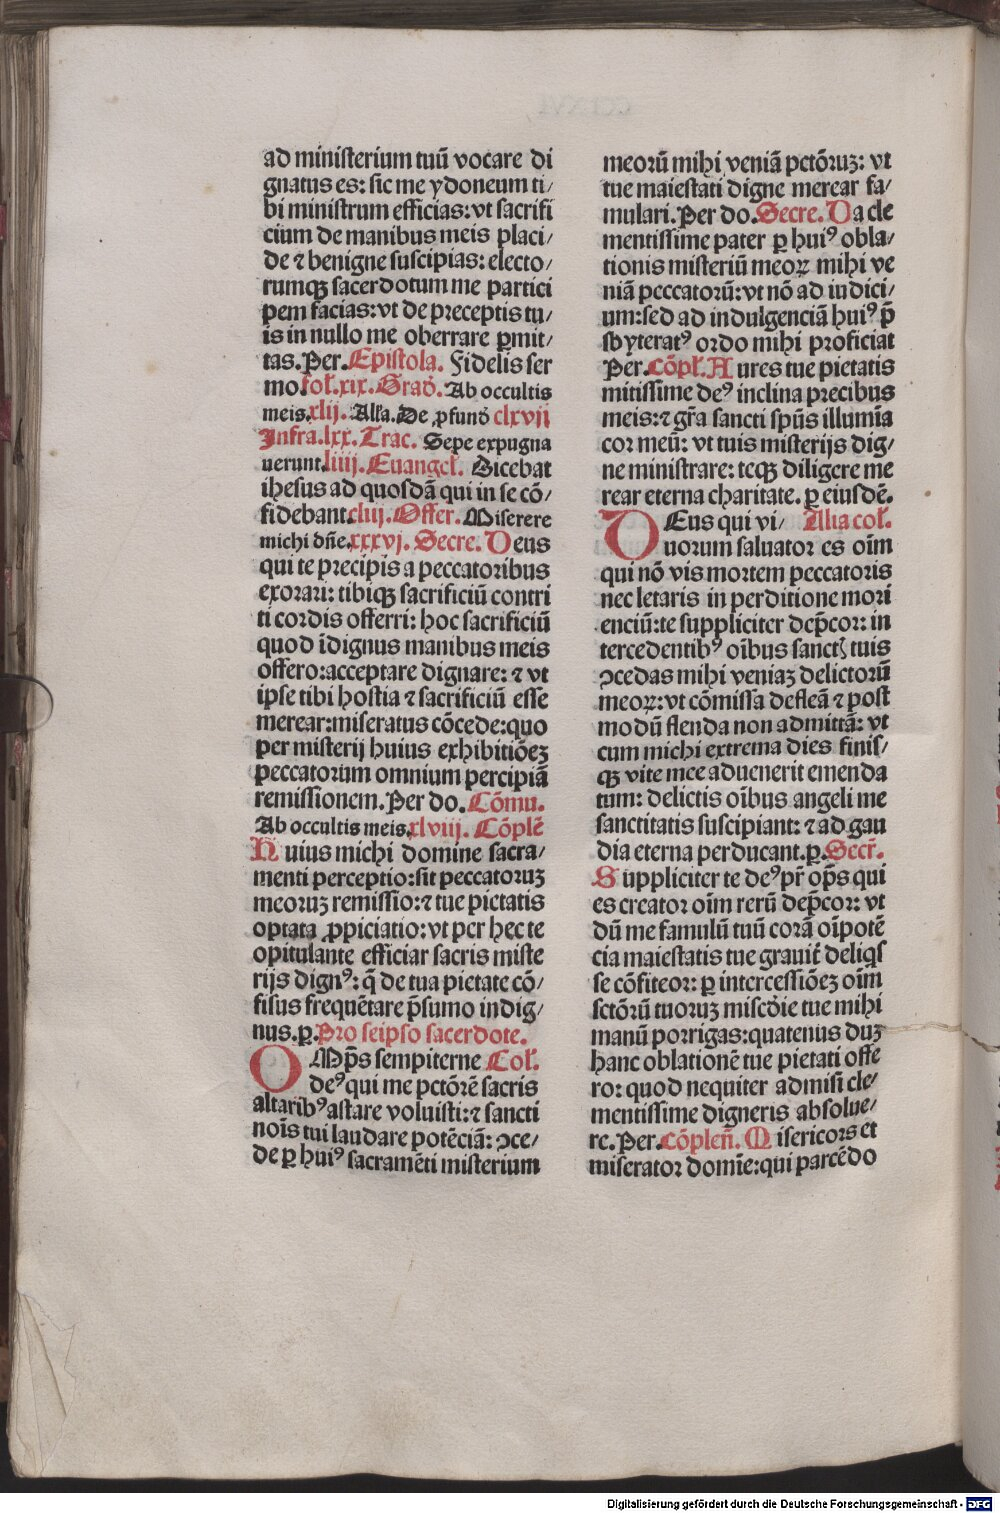 ad ministerium tuū vocare di
gnatus es: sic me ydoneum ti/
bi ministrum efficias: vt sacrifi
cium de manibus meis placi/
de ⁊ benigne suscipias: electo/
rumqꝫ sacerdotum me partici
pem facias: vt de preceptis tu/
is in nullo me oberrare ꝑmit/
tas. Per. Epistola. Fidelis ser
mo. fol. xix. Grad. Ab occultis
meis. xlij. Alla. De ꝓfund clxvij
Infra. lxx. Trac. Sepe expugna
uerunt. liiij. Euangel. Dicebat
ihesus ad quosdā qui in se cō/
fidebant. cliij. Offer. Miserere
michi dn̄e. xxxvj. Secre. Deus
qui te precipis a peccatoribus
exorari: tibiqꝫ sacrificiū contri
ti cordis offerri: hoc sacrificiū
quod īdignus manibus meis
offero: acceptare dignare: ⁊ vt
ipse tibi hostia ⁊ sacrificiū esse
merear: miseratus cōcede: quo
per misterij huius exhibitiōeꝫ
peccatorum omnium percipiā
remissionem. Per do. Cōmu.
Ab occultis meis. xlviij. Cōplē
Huius michi domine sacra/
menti perceptio: sit peccatoruꝫ
meoruꝫ remissio: ⁊ tue pietatis
optata ꝓpiciatio: vt per hec te
opitulante efficiar sacris miste
rijs dignꝰ: q̄ de tua pietate cō/
fisus frequētare p̄sumo indig/
nus. ꝑ. Pro seipso sacerdote.
OMp̄s sempiterne Col.
deꝰ qui me pctōrē sacris
altaribꝰ astare voluisti: ⁊ sancti
noīs tui laudare potēciā: ꝯce/
de ꝑ huiꝰ sacramēti misterium
meorū mihi veniā pctōruꝫ: vt
tue maiestati digne merear fa/
mulari. Per do. Secre. Da cle
mentissime pater ꝑ huiꝰ obla/
tionis misteriū meoꝝ mihi ve
niā peccatorū: vt nō ad iudici/
um: sed ad indulgenciā huiꝰ p̄
sbyteratꝰ ordo mihi proficiat
Per. Cōpl. Aures tue pietatis
mitissime deꝰ inclina precibus
meis: ⁊ gr̄a sancti sp̄us illumīa
cor meū: vt tuis misterijs dig/
ne ministrare: teqꝫ diligere me
rear eterna charitate. ꝑ eiusdē.
DEus qui vi/ Alia col.
uorum saluator es oīm
qui nō vis mortem peccatoris
nec letaris in perditione mori
enciū: te suppliciter dep̄cor: in
tercedentibꝰ oībus sanctꝭ tuis
ꝯcedas mihi veniaꝫ delictorū
meoꝝ: vt cōmissa defleā ⁊ post
modū flenda non admittā: vt
cum michi extrema dies finis/
qꝫ vite mee aduenerit emenda
tum: delictis oībus angeli me
sanctitatis suscipiant: ⁊ ad gau
dia eterna perducant. ꝑ. Secr̄.
Suppliciter te deꝰ pr̄ op̄s qui
es creator oīm rerū dep̄cor: vt
dū me famulū tuū corā oīpotē
cia maiestatis tue grauit̄ deliqꝭ
se cōfiteor: ꝑ intercessiōeꝫ oīm
sctōrū tuoruꝫ miscd̄ie tue mihi
manū porrigas: quatenus duꝫ
hanc oblationē tue pietati offe
ro: quod nequiter admisi cle/
mentissime digneris absolue/
re. Per. Cōplen̄. Misericors et
miserator domīe: qui parcēdo
Digitalisierung gefördert durch die Deutsche Forschungsgemeinschaft - DFG